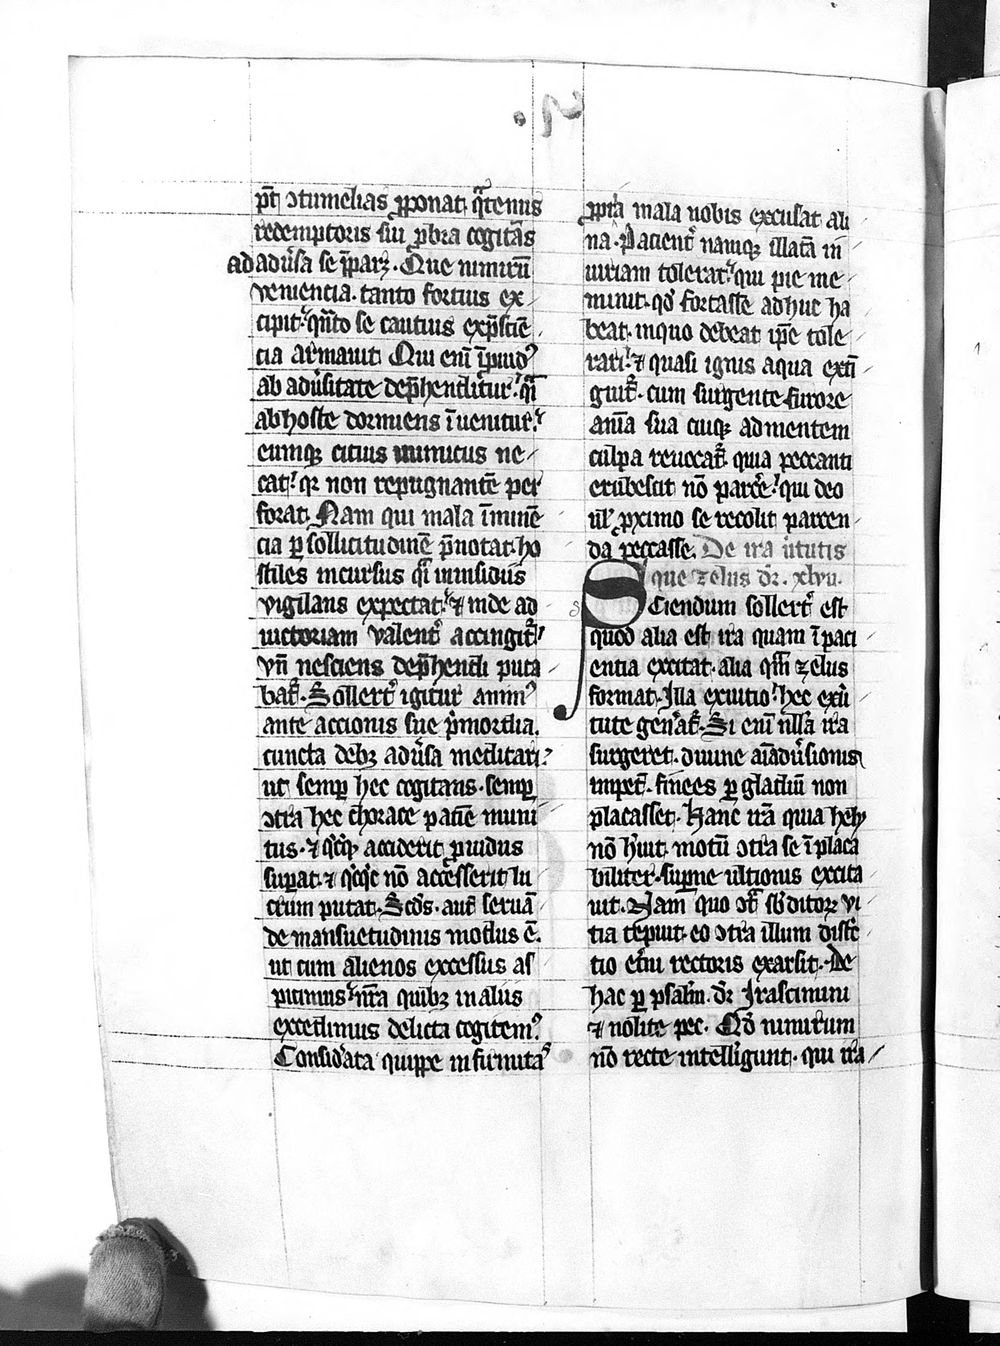 pт̄ ɔtumelias ꝓponat q̾tenus
redemptoris sui ꝓbra cogitās
ad adũsa se p̄paret. Que nimirū
venientia. tanto fortius ex
cipit. q̾nto se cautius exp̄scie
cia armauit. Qui enī īpuidꝰ
ab adũsitate dep̄henditur. q̾i
ab hoste dormiens īuenitur.
eumqꝫ citius inimicus ne
cat. qꝛ non repugnantē per
forat. Nam qui mala īminē
cia ꝑ sollicitudinē p̄notat. ho
stiles incursus q̾i in insidiis
vigilans expectat. ⁊ inde ad
uictoriam valent᷒ accingit᷒
vn̄ nesciens dep̄hendi puta
bat᷒. Sollert᷒ igitur animꝰ
ante accionis sue p̄mordia.
cuncta debꝫ adũsa meditari.
ut semꝑ hec cogitans. semꝑ
ɔtra hec thorace paciē muni
tus. ⁊ q̾cqͥd acciderit ꝓuidus
suꝑat. ⁊ q̾cqͥd nō accesserit lu
crum putat. Scds. aut̄ seruā
de mansuetudinis modus ē.
ut cum alienos excessus as
picimus nr̄a quibꝫ in aliis
excedimus delicta cogitemꝰ
Considata quippe infirmitaˢ
ꝓpria mala nobis excusat ali
na. Pacient᷒ namqꝫ illatā in
iuriam tolerat. qui pie me
minit. qd̄ fortasse adhuc ha
beat. in quo debeat ip̄e tole
rari. ⁊ quasi ignis aqua exti
guit᷒. cum surgente furore
anīa sua cuiqꝫ ad mentem
culpa reuocat᷒. quia peccanti
erubescit nō parce᷒. qui deo
ul̄ ꝓximo se recolit parcen
da peccasse. De ira ũtutis
que zelus dr̄. xlvii.
Sciendum sollert᷒ est
quod alia est ira quam īpaci
entia excitat. alia quā zelus
format. Illa ex uitio. hec ex ũ
tute gen̾at᷒. Si enī nll̄a ira
surgeret. diuine aīaduersionis
impet᷒. finees ꝑ gladiū non
placasset. Hanc irā quia hely
nō hũit. motū ɔtra se īplaca
biliter. suꝑne ultionis excita
uit. Nam quo ɔt᷒ sb̄ditoꝝ vi
tia tepuit. eo ɔtra illum distic
tio et̄ni rectoris exarsit. De
hac ꝑ psalm. dr̄ Irascimini
⁊ nolite pec. Qd̄ nimirum
nō recte intelligunt. qui ira